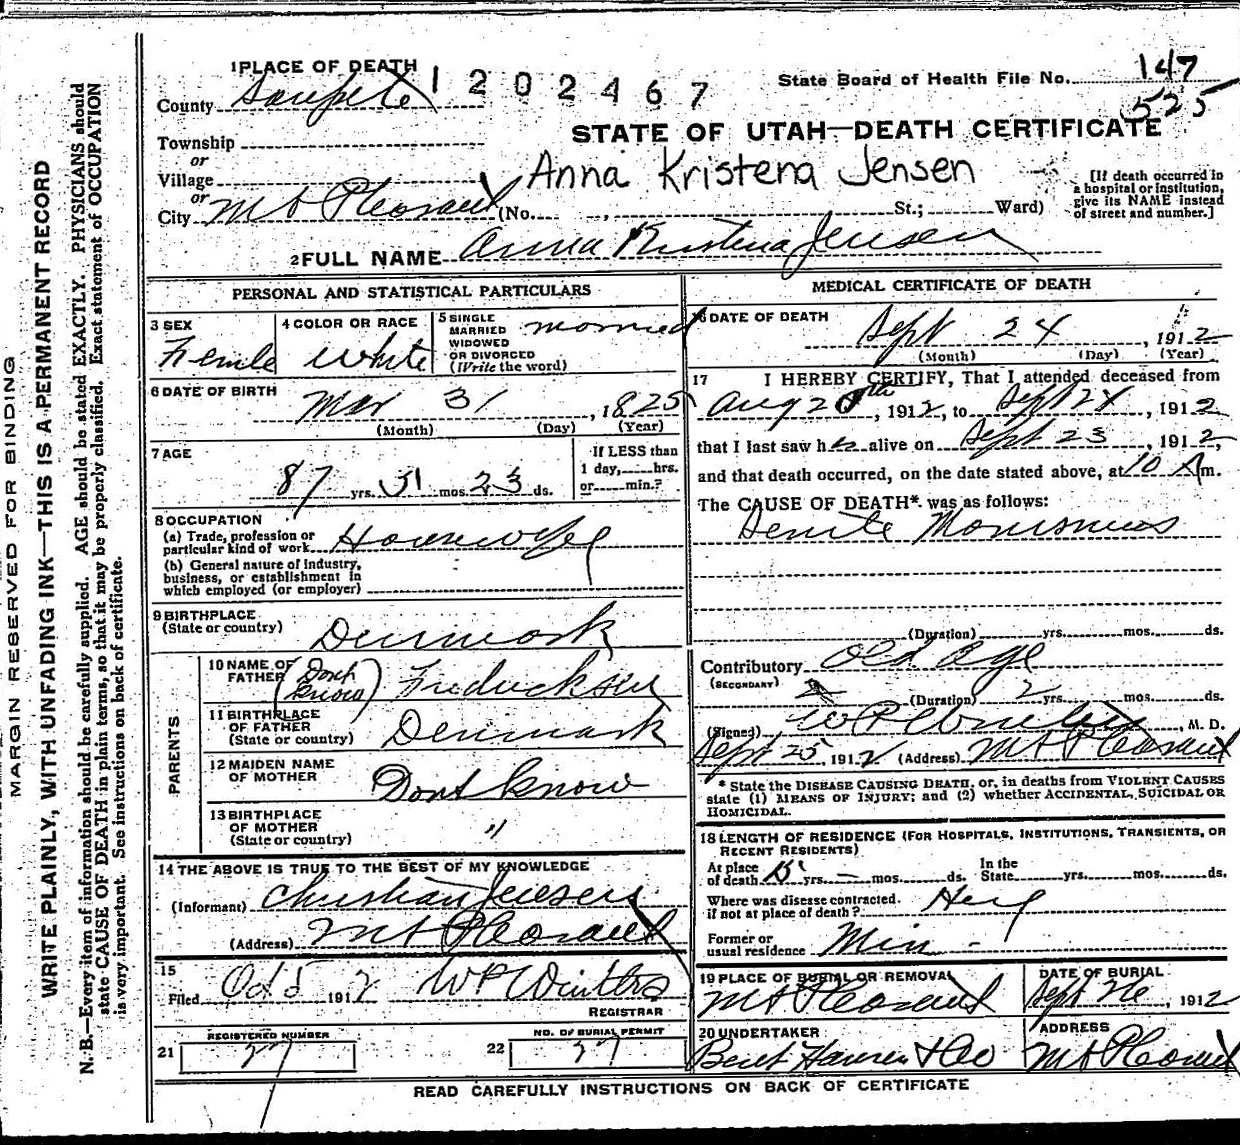 MARGIN RESERVED FOR BINDING
WRITE PLAINLY, WITH UNFADING INK—THIS IS A PERMANENT RECORD
N. B.—Every item of information should be carefully supplied. AGE should be stated EXACTLY. PHYSICIANS should
state CAUSE OF DEATH in plain terms, so that it may be properly classified. Exact statement of OCCUPATION
is very important. See instructions on back of certificate.
1 PLACE OF DEATH
1202467
State Board of Health File No. 147
525
County Sanpete
STATE OF UTAH—DEATH CERTIFICATE
Township
or
Village
or
Anna Kristena Jensen
[If death occurred in
a hospital or institution,
give its NAME instead
of street and number.]
City Mt Pleasant (No. , St.; Ward)
2 FULL NAME Anna Kristena Jensen
PERSONAL AND STATISTICAL PARTICULARS
3 SEX
Female
4 COLOR OR RACE
White
5 SINGLE
MARRIED
WIDOWED
OR DIVORCED
(Write the word)
Married
6 DATE OF BIRTH
Mar 31, 1825
(Month) (Day) (Year)
7 AGE
87 yrs. mos. 23 ds.
If LESS than
1 day, hrs.
or min.?
8 OCCUPATION
(a) Trade, profession or
particular kind of work Housewife
(b) General nature of Industry,
business, or establishment in
which employed (or employer)
9 BIRTHPLACE
(State or country)
Denmark
PARENTS
10 NAME OF
FATHER (Dont know) Fredricksen
11 BIRTHPLACE
OF FATHER
(State or country)
Denmark
12 MAIDEN NAME
OF MOTHER
Dont know
13 BIRTHPLACE
OF MOTHER
(State or country)
"
14 THE ABOVE IS TRUE TO THE BEST OF MY KNOWLEDGE
(Informant) Christian Jensen
(Address) Mt Pleasant
15
Filed Oct 5 1912 W P Winters
REGISTRAR
21
REGISTERED NUMBER
37
22
NO. OF BURIAL PERMIT
37
MEDICAL CERTIFICATE OF DEATH
16 DATE OF DEATH
Sept 24, 1912
(Month) (Day) (Year)
17 I HEREBY CERTIFY, That I attended deceased from
Aug 20th, 1912, to Sept 24, 1912
that I last saw her alive on Sept 23, 1912,
and that death occurred, on the date stated above, at 10 A m.
The CAUSE OF DEATH* was as follows:
Senile
(Duration) yrs. mos. ds.
Contributory Old age
(SECONDARY)
(Duration) 2 yrs. mos. ds.
(Signed) , M. D.
Sept 25, 1912 (Address) Mt Pleasant
* State the DISEASE CAUSING DEATH, or, in deaths from VIOLENT CAUSES
state (1) MEANS OF INJURY; and (2) whether ACCIDENTAL, SUICIDAL OR
HOMICIDAL.
18 LENGTH OF RESIDENCE (FOR HOSPITALS, INSTITUTIONS, TRANSIENTS, OR
RECENT RESIDENTS)
At place
of death 15 yrs. — mos. ds. In the
State yrs. mos. ds.
Where was disease contracted.
if not at place of death? Here
Former or
usual residence Minn -
19 PLACE OF BURIAL OR REMOVAL
Mt Pleasant
DATE OF BURIAL
Sept 26, 1912
20 UNDERTAKER
Bent Hansen & Co
ADDRESS
Mt Pleasant
READ CAREFULLY INSTRUCTIONS ON BACK OF CERTIFICATE